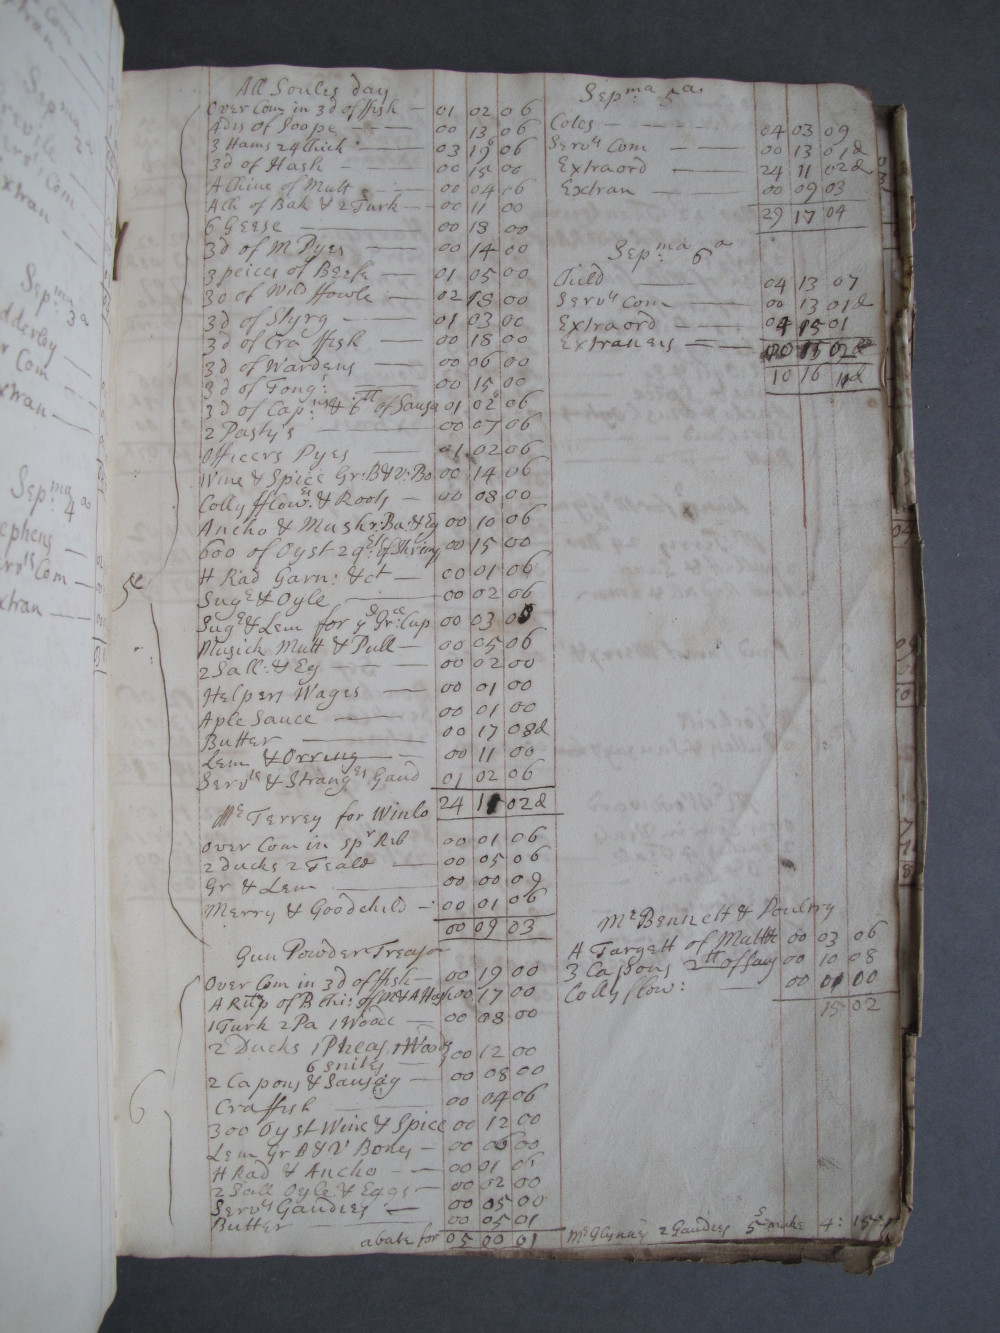 All Soules day
Over Com in 3d of ffish — 01 02 06
4 dis of Soope — 00 13 06
3 Hams 24 Chick — 03 19 06
3d of Hash — 00 15 00
A Chine of Mutt 00 04 06
Alk of Bak & 2 Turk — 00 11 00
6 Geese — 00 18 00
3d of M Pyes — 00 14 00
3 peices of Beefe — 01 05 00
3d of Wild ffowle — 02 18 00
3d of Shyrg — 01 03 00
3d of Cra ffish — 00 18 00
3d of Wardens — 00 06 00
3d of Tongs — 00 15 00
3d of Capns & 6tt of Sausa 01 02 06
2 Pastys — 00 07 06
Officers Pyes — 01 02 06
Wine & Spice Gr: B & V: Bo 00 14 06
Colly fflowrs & Roots — 00 08 00
Ancho & Mushr: Ba: & Eg 00 10 06
600 of Oyst 2 qts of Shrimp 00 15 00
H Rad Garn: &ct — 00 01 06
Sugr & Oyle — 00 02 06
Sugr & Lem for ye Grace Cup 00 03 0
Musick Mutt & Pull — 00 05 06
2 Sall: & Eg — 00 02 00
Helpers Wages — 00 01 00
Aple Sauce — 00 01 00
Butter — 00 17 08d
Lem & Orring — 00 11 00
Servts & Strangers Gaud 01 02 06
5
24 11 02d
Mr Terrey for Winlo
Over Com in spr Rib 00 01 06
2 Ducks 2 Teale — 00 05 06
Gr & Lem — 00 00 09
Merry & Goodchild — 00 01 06
00 09 03
Gun Powder Treason
Over Com in 3d of ffish — 00 19 00
A Rump of B thi: of M & A Hash 00 17 00
1 Turk 2 Pa 1 Woodc — 00 08 00
2 Ducks 1 Pheas 1 Woodc
6 Snites — 00 12 00
2 Capons & Sausag — 00 08 00
Cra ffish — 00 04 06
300 Oyst Wine & Spice 00 12 00
Lem Gr B & V Bones — 00 06 00
H Rad & Ancho — 00 01 06
2 Sall Oyle & Eggs — 00 02 00
Servts Gaudies — 00 05 00
Butter — 00 05 01
6
abate for 05 00 01
Sepma 5a
Coles — 04 03 09
Servts Com — 00 13 01d
Extraord — 24 11 02d
Extran — 00 09 03
29 17 04
Sepma 6a
Tuld — 04 13 07
Servts Com — 00 13 01d
Extraord — 04 15 01
Extraneis — 00 15 02
10 16 11d
Mr Bennett & Poultry
A Targett of Mutt 00 03 06
3 Capons 2tt of Saus 00 10 08
Collyflow: — 00 01 00
15 02
Mr Glynnes 2 Gaudies 5s make 4: 15s:
Sepma 2a
Greville
Servts Com
Extran
Sepma 3a
Adderley
Com
Extran
Sepma 4a
Stephens
Servts Com
Extran